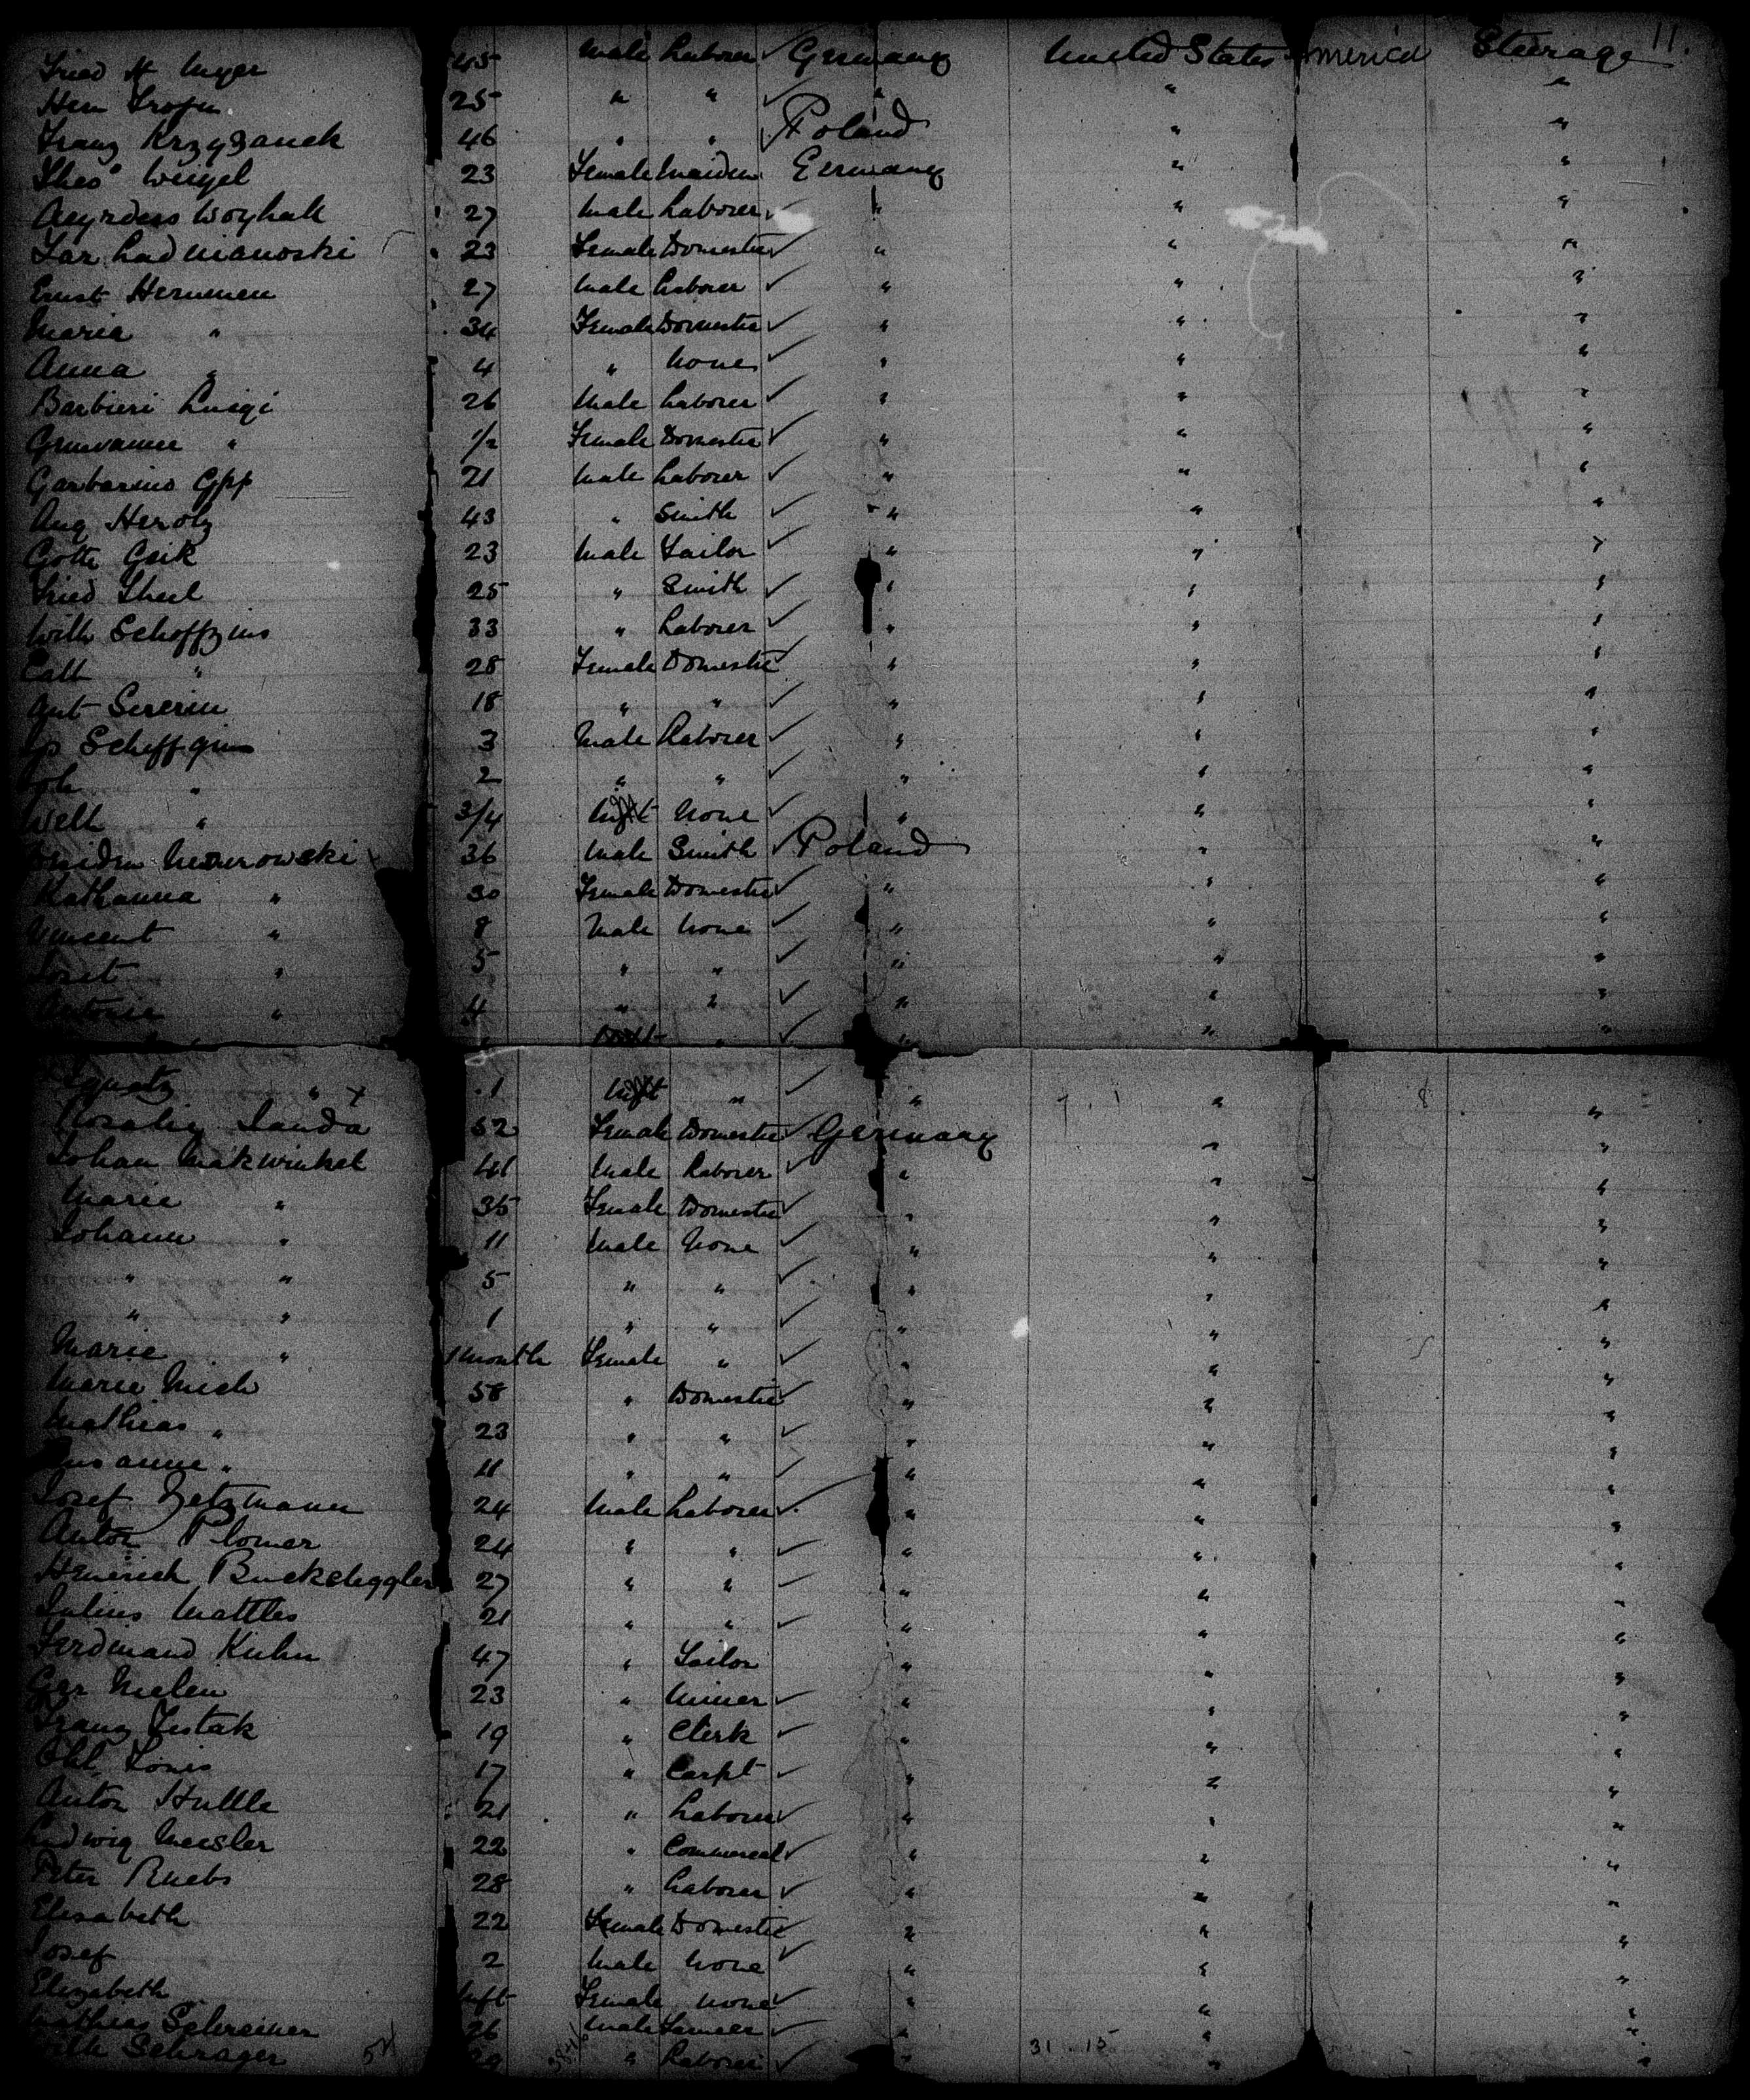 11.
Fried H Meyer 45 Male Laborer ✓ Germany United States America Steerage
Hem 25 " " ✓ " " "
Franz Krzyzanek 46 " " ✓ Poland " "
Theo Weigel 23 Female Maiden Germany " "
Woyhak 27 Male Laborer ✓ " " "
23 Female Domestic ✓ " " "
Ernst Hermmen 27 Male Laborer ✓ " " "
Maria " 34 Female Domestic ✓ " " "
Anna " 4 " None ✓ " " "
Barbieri Luigi 26 Male Laborer ✓ " " "
" 1/2 Female Domestic ✓ " " "
Garbarino Gpp 21 Male Laborer ✓ " " "
Aug Herolz 43 " Smith ✓ " " "
Gotte Gsik 23 Male Tailor ✓ " " "
Fried Theel 25 " Smith ✓ " " "
Wilh Schoffgins 33 " Laborer ✓ " " "
Cath " 28 Female Domestic ✓ " " "
Ant Sererin 18 " " ✓ " " "
Schiffgins 3 Male Laborer ✓ " " "
" 2 " " ✓ " " "
Wilh " 3/4 Inft None ✓ " " "
36 Male Smith ✓ Poland " "
Katharina " 30 Female Domestic ✓ " " "
Vincent " 8 Male None ✓ " " "
Joset " 5 " " ✓ " " "
Antonie " 4 " " ✓ " " "
Ignatz " 1 Inft " ✓ " " "
Rosalie Janda 52 Female Domestic ✓ Germany " "
Johan Makwinkel 41 Male Laborer ✓ " " "
Marie " 35 Female Domestic ✓ " " "
Johann " 11 Male None ✓ " " "
" " 5 " " ✓ " " "
" " 1 " " ✓ " " "
Marie " 1 month Female " ✓ " " "
Marie Mich 58 " Domestic ✓ " " "
Mathias " 23 " " ✓ " " "
Susanne " 11 " " ✓ " " "
Josef Zetzmann 24 Male Laborer ✓ " " "
Anton Plomer 24 " " ✓ " " "
Heinrich Bucksteggler 27 " " ✓ " " "
Julius Mattles 21 " " ✓ " " "
Ferdinand Kuhn 47 " Tailor " " "
Ger Nielen 23 " Miner ✓ " " "
Franz Zestak 19 " Clerk ✓ " " "
Ohl Louis 17 " Carpt ✓ " " "
Anton Huttle 21 " Laborer ✓ " " "
Ludwig Meisler 22 " Commercal ✓ " " "
Peter Ruebs 28 " Laborer ✓ " " "
Elisabeth 22 Female Domestic ✓ " " "
Josef 2 Male None ✓ " " "
Elizabeth Inft Female None ✓ " " "
Mathias Schreiner 26 Male ✓ " " "
Schrager 29 " Laborer ✓ " " "
31 15